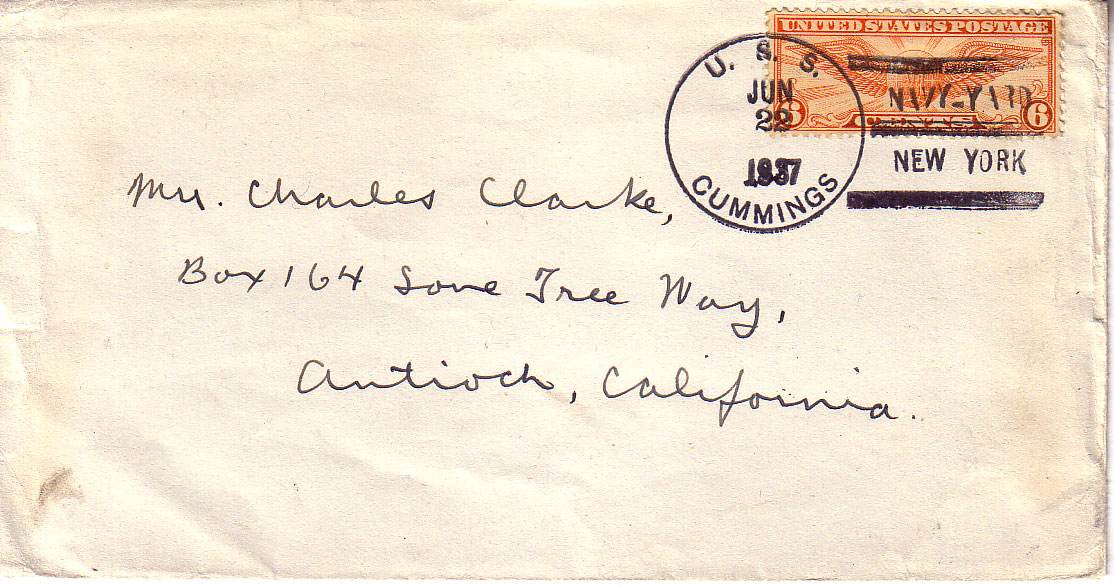 UNITED STATES POSTAGE
6 6
U. S. S.
JUN
22
1937
CUMMINGS
NAVY-YARD
NEW YORK
Mrs. Charles Clarke,
Box 164 Lone Tree Way,
Antioch, California.